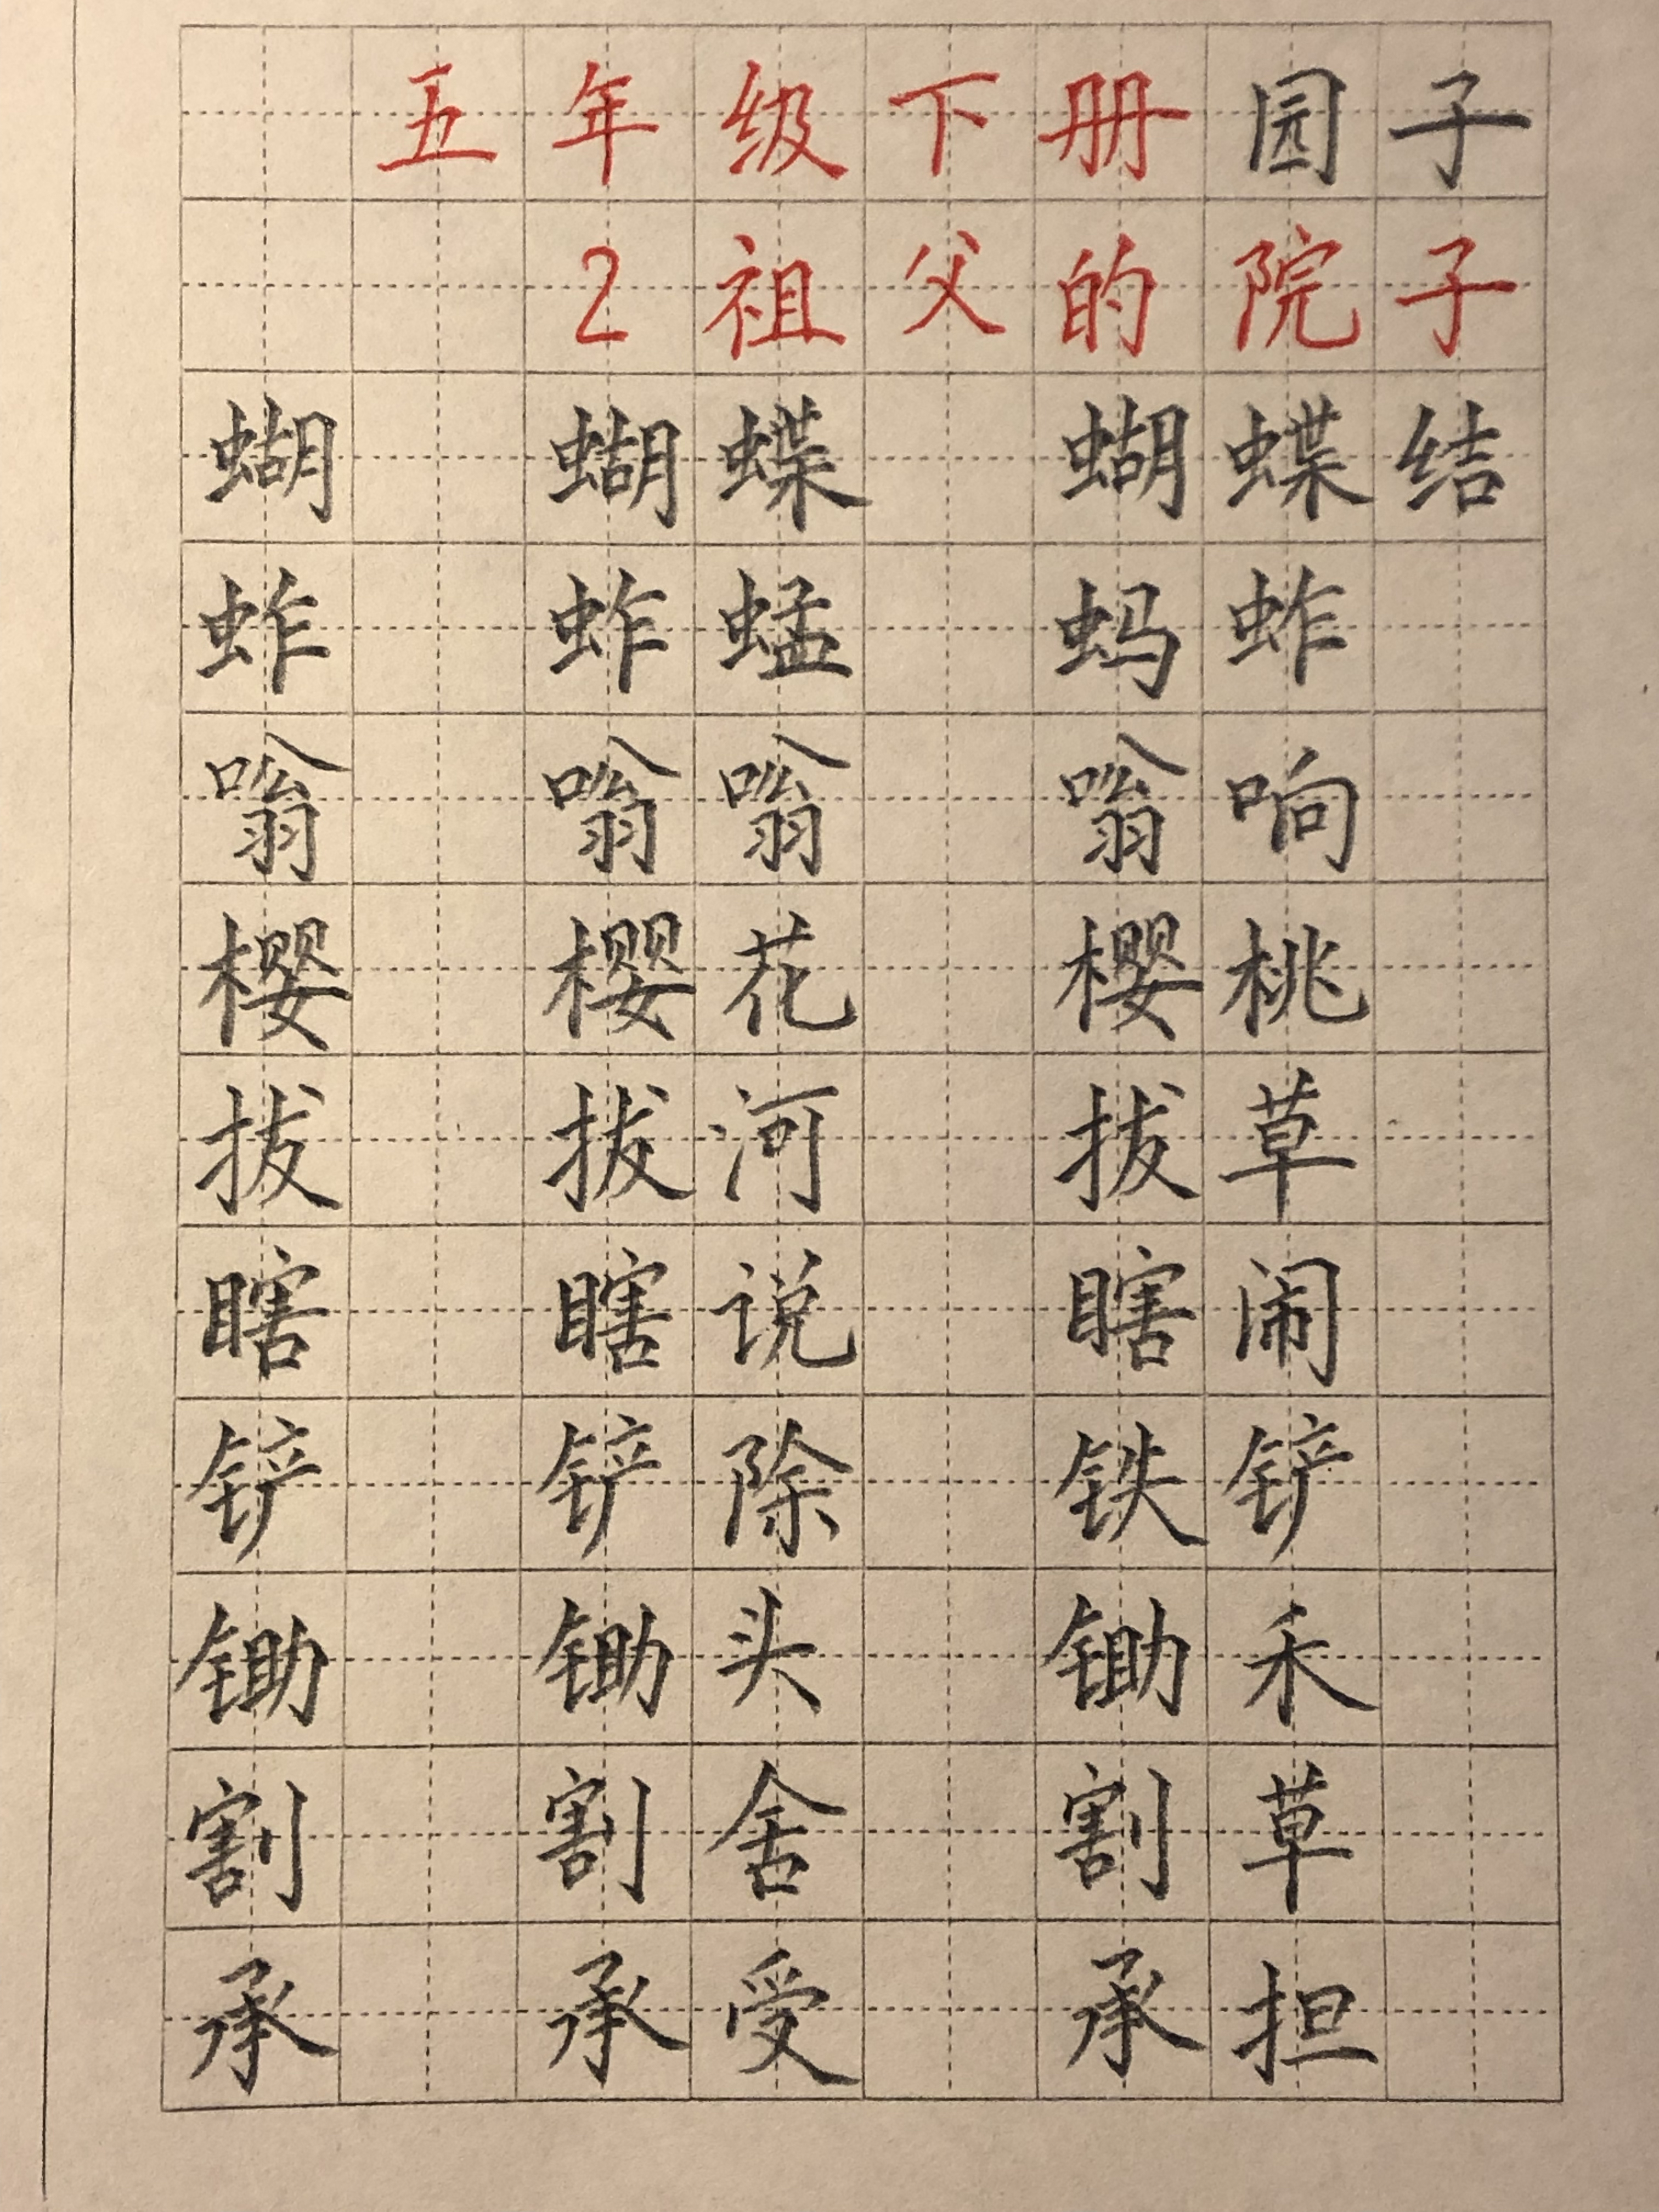 五年级下册园子
2祖父的院子
蝴 蝴蝶 蝴蝶结
蚱 蚱蜢 蚂蚱
嗡 嗡嗡 嗡响
樱 樱花 樱桃
拔 拔河 拔草
瞎 瞎说 瞎闹
铲 铲除 铁铲
锄 锄头 锄禾
割 割舍 割草
承 承受 承担